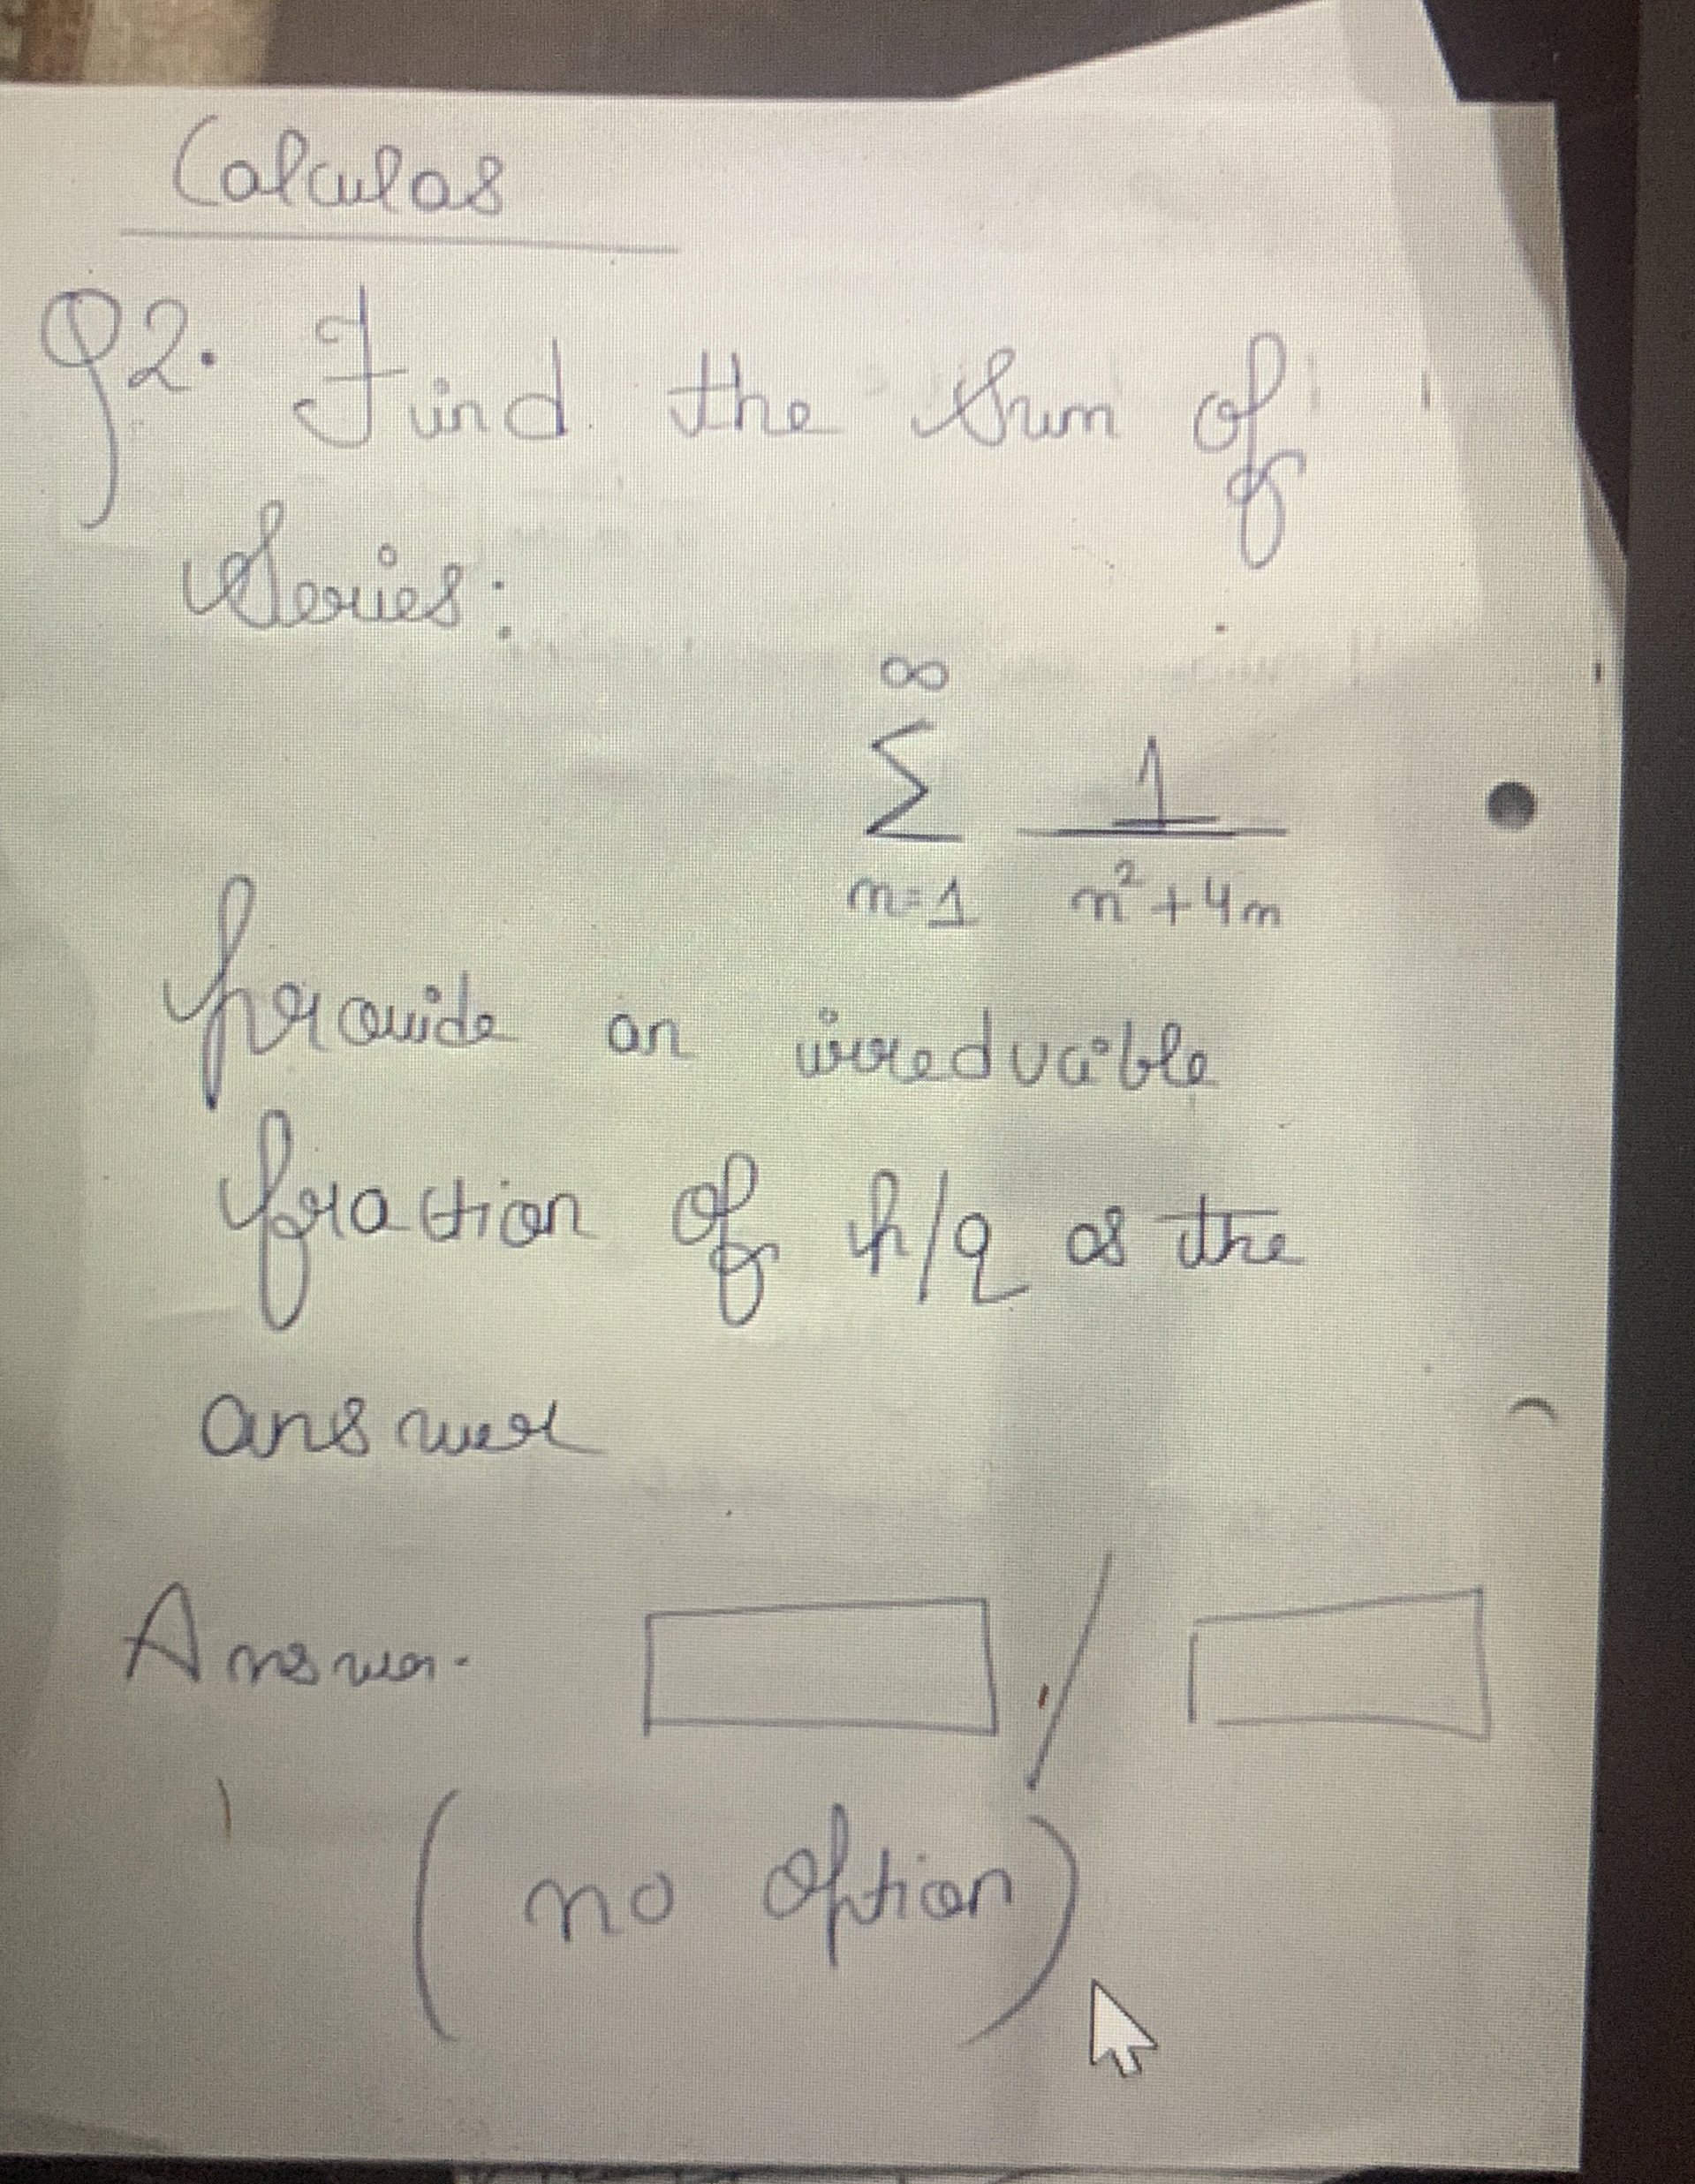 Calculas
Q2. Find the Sum of
Series:
∞
∑ 1
n=1 n²+4n
provide an irreducible
fraction of p/q as the
answer
Answer.
/
(no option)